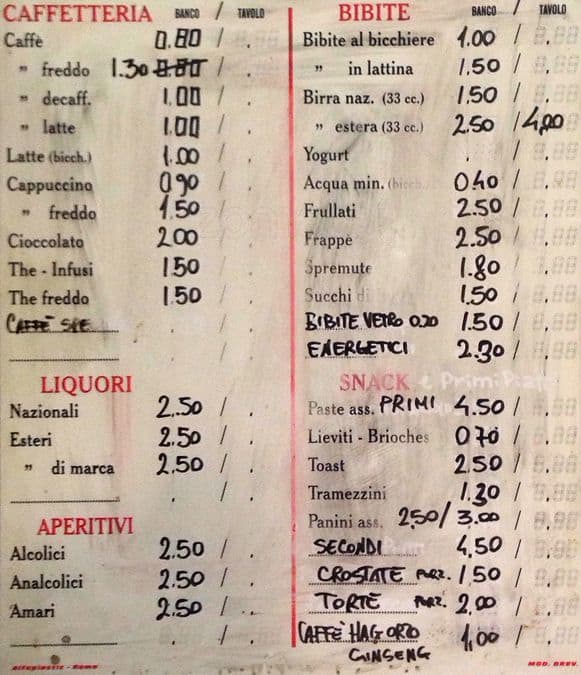 CAFFETTERIA BANCO / TAVOLO
Caffè 0.80 / .
" freddo 1.30 0.80 / .
" decaff. 1.00 / .
" latte 1.00 / .
Latte (bicch.) 1.00 / .
Cappuccino 0.90 / .
" freddo 1.50 / .
Cioccolato 2.00 / .
The - Infusi 1.50 / .
The freddo 1.50 / .
CAFFÈ . / .
LIQUORI
Nazionali 2.50 / .
Esteri 2.50 / .
" di marca 2.50 / .
APERITIVI
Alcolici 2.50 / .
Analcolici 2.50 / .
Amari 2.50 / .
Alfaplastic - Roma
BIBITE BANCO / TAVOLO
Bibite al bicchiere 1.00 /
" in lattina 1.50 /
Birra naz. (33 cc.) 1.50 /
" estera (33 cc.) 2.50 / 4,00
Yogurt . /
Acqua min. (bicch. 0.40 /
Frullati 2.50 /
Frappè 2.50 /
Spremute 1.80 /
Succhi di 1.50 /
BIBITE VETRO 0.20 1.50 /
ENERGETICI 2.30 /
SNACK e Primi
Paste ass. PRIMI 4.50 /
Lieviti - Brioches 0.70 /
Toast 2.50 /
Tramezzini 1.30 /
Panini ass. 2,50 / 3.00 /
SECONDI 4,50 /
CROSTATE PORZ. 1,50 /
TORTE PORZ. 2,00 /
CAFFÈ HAG ORZO 1,00 /
GINSENG
MOD. BREV.